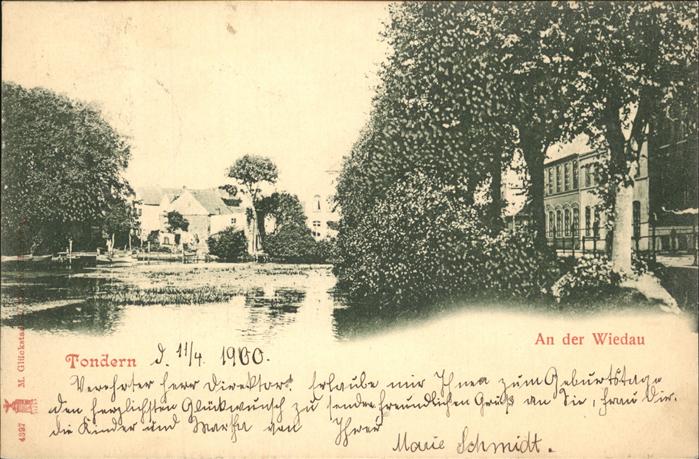 An der Wiedau
Tondern d. 11/4. 1900.
Verehrter Herr Direktor! Erlaube mir Ihnen zum Geburtstage
den herzlichsten Glückwunsch zu senden. Freundlichen Gruß an Sie, Frau Dir.
die Kinder und Martha von Ihrer
Marie Schmidt.
4397 M. Glückstad